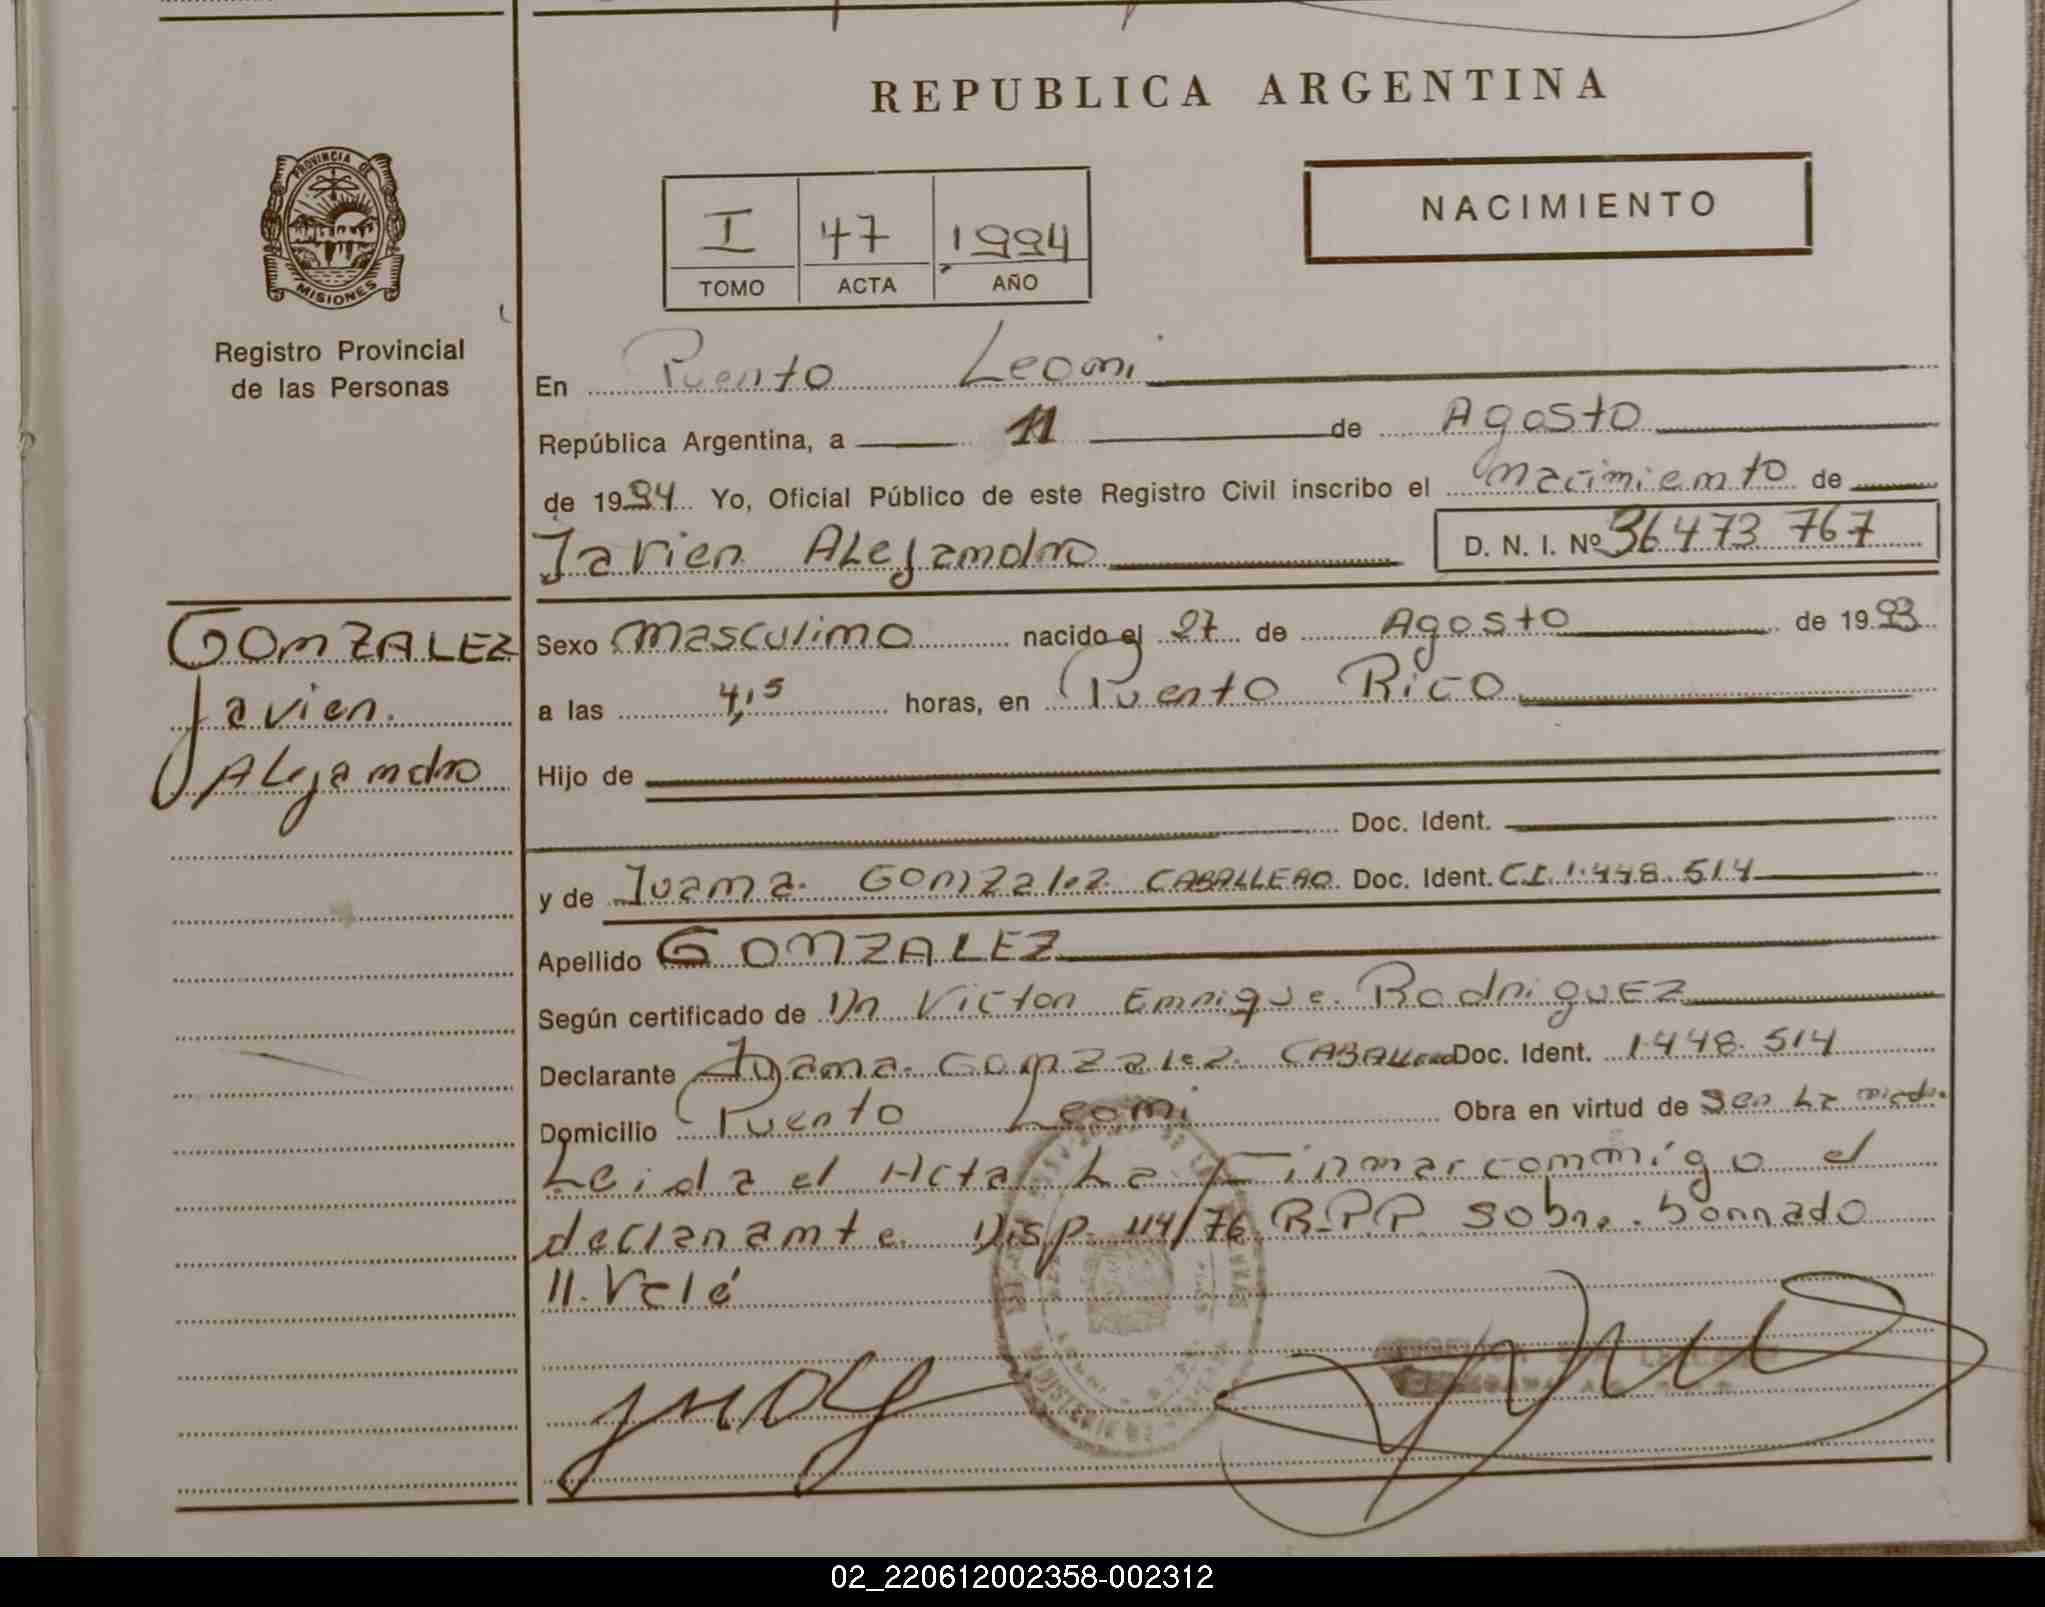 REPUBLICA ARGENTINA
PROVINCIA DE
MISIONES
Registro Provincial
de las Personas
I 47 1994
TOMO ACTA AÑO
NACIMIENTO
En Puerto Leoni
República Argentina, a 11 de Agosto
de 1994 Yo, Oficial Público de este Registro Civil inscribo el nacimiento de
Javier Alejandro D. N. I. Nº 36 473 767
GONZALEZ
Javier
Alejandro
Sexo masculino nacido el 27 de Agosto de 1993
a las 4,15 horas, en Puerto Rico
Hijo de
Doc. Ident.
y de Juana Gonzalez CABALLERO Doc. Ident. C.I. 1.448.514
Apellido GONZALEZ
Según certificado de Dr Victor Enrique Rodriguez
Declarante Juana Gonzalez CABALLERO Doc. Ident. 1.448.514
Domicilio Puerto Leoni Obra en virtud de Ser La madre
Leida el Acta La Firmar conmigo el
declarante Disp. 114/76 R.P.P. sobre borrado
11. Vale
02_220612002358-002312